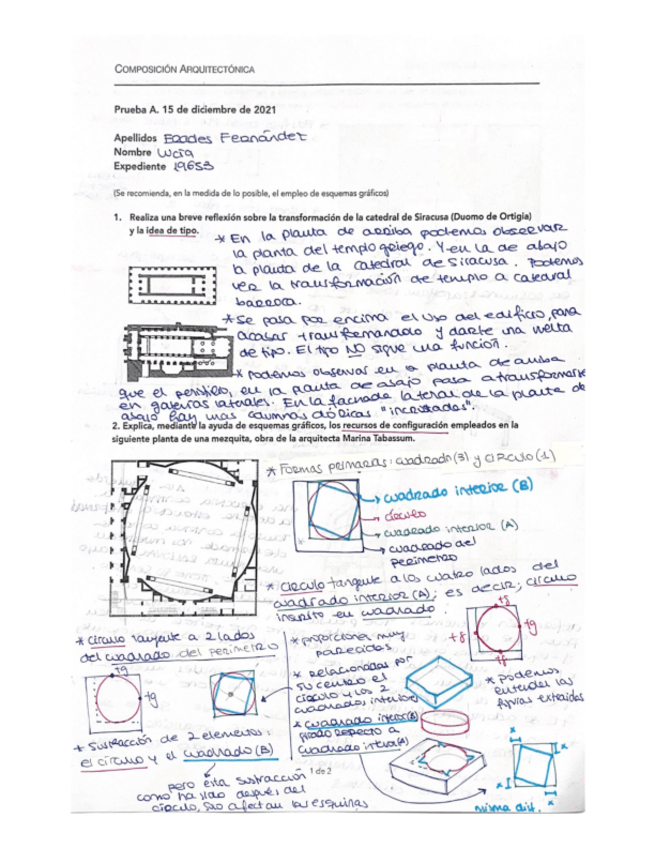 COMPOSICIÓN ARQUITECTÓNICA
Prueba A. 15 de diciembre de 2021
Apellidos Erades Fernández
Nombre Lucía
Expediente 19653
(Se recomienda, en la medida de lo posible, el empleo de esquemas gráficos)
1. Realiza una breve reflexión sobre la transformación de la catedral de Siracusa (Duomo de Ortigia)
y la idea de tipo.
* En la planta de arriba podemos observar
la planta del templo griego. Y en la de abajo
la planta de la catedral de Siracusa. Podemos
ver la transformación de templo a catedral
barroca.
* Se pasa por encima el uso del edificio, para
acabar transformando y darle una vuelta
de tipo. El tipo NO sigue una función.
* Podemos observar en la planta de arriba
que el peristilo, en la planta de abajo pasa a transformarse
en galerías laterales. En la fachada lateral de la planta de
abajo hay unas columnas dóricas "incrustadas".
2. Explica, mediante la ayuda de esquemas gráficos, los recursos de configuración empleados en la
siguiente planta de una mezquita, obra de la arquitecta Marina Tabassum.
* Formas primarias: cuadrado (3) y círculo (1)
cuadrado interior (B)
círculo
cuadrado interior (A)
cuadrado del
perímetro
* círculo tangente a los cuatro lados del
cuadrado interior (A); es decir, círculo
inscrito en cuadrado.
* círculo tangente a 2 lados
del cuadrado del perímetro
tg
tg
* Sustracción de 2 elementos:
el círculo y el cuadrado (B)
pero esta sustracción
como ha sido después del
círculo, solo afectan las esquinas
* proporciones muy
parecidas
* Relacionados por
su centro el
círculo y los 2
cuadrados interiores
* cuadrado interior (B)
girado respecto a
cuadrado interior (A)
tg
tg
tg
tg
* podemos
entender las
figuras extraídas
x
x
x
x
misma dist.
1 de 2